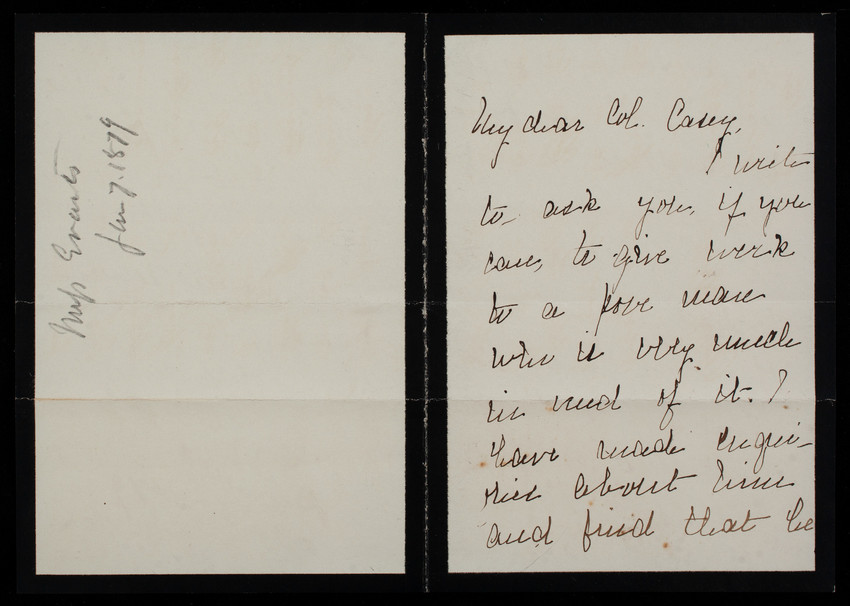 Miss Evarts
Jan 7. 1879
My dear Col. Casey,
I write
to ask you, if you
can, to give work
to a poor man
who is very much
in need of it. I
have made enqui-
ries about him
and find that he